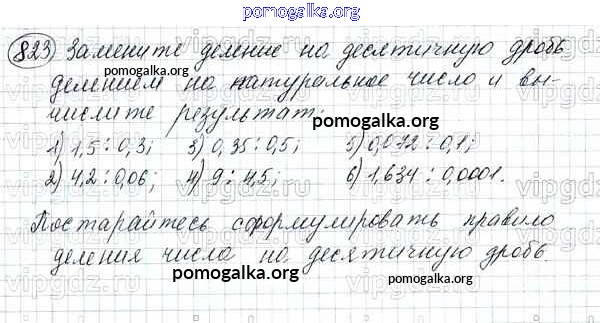 pomogalka.org
823 Замените деление на десятичную дробь
делением на натуральное число и вы-
pomogalka.org
числите результат:
pomogalka.org
1) 1,5 : 0,3; 3) 0,35 : 0,5; 5) 0,072 : 0,1;
2) 4,2 : 0,06; 4) 9 : 4,5; 6) 1,634 : 0,0001.
pomogalka.org
Постарайтесь сформулировать правило
деления числа на десятичную дробь.
pomogalka.org
pomogalka.org